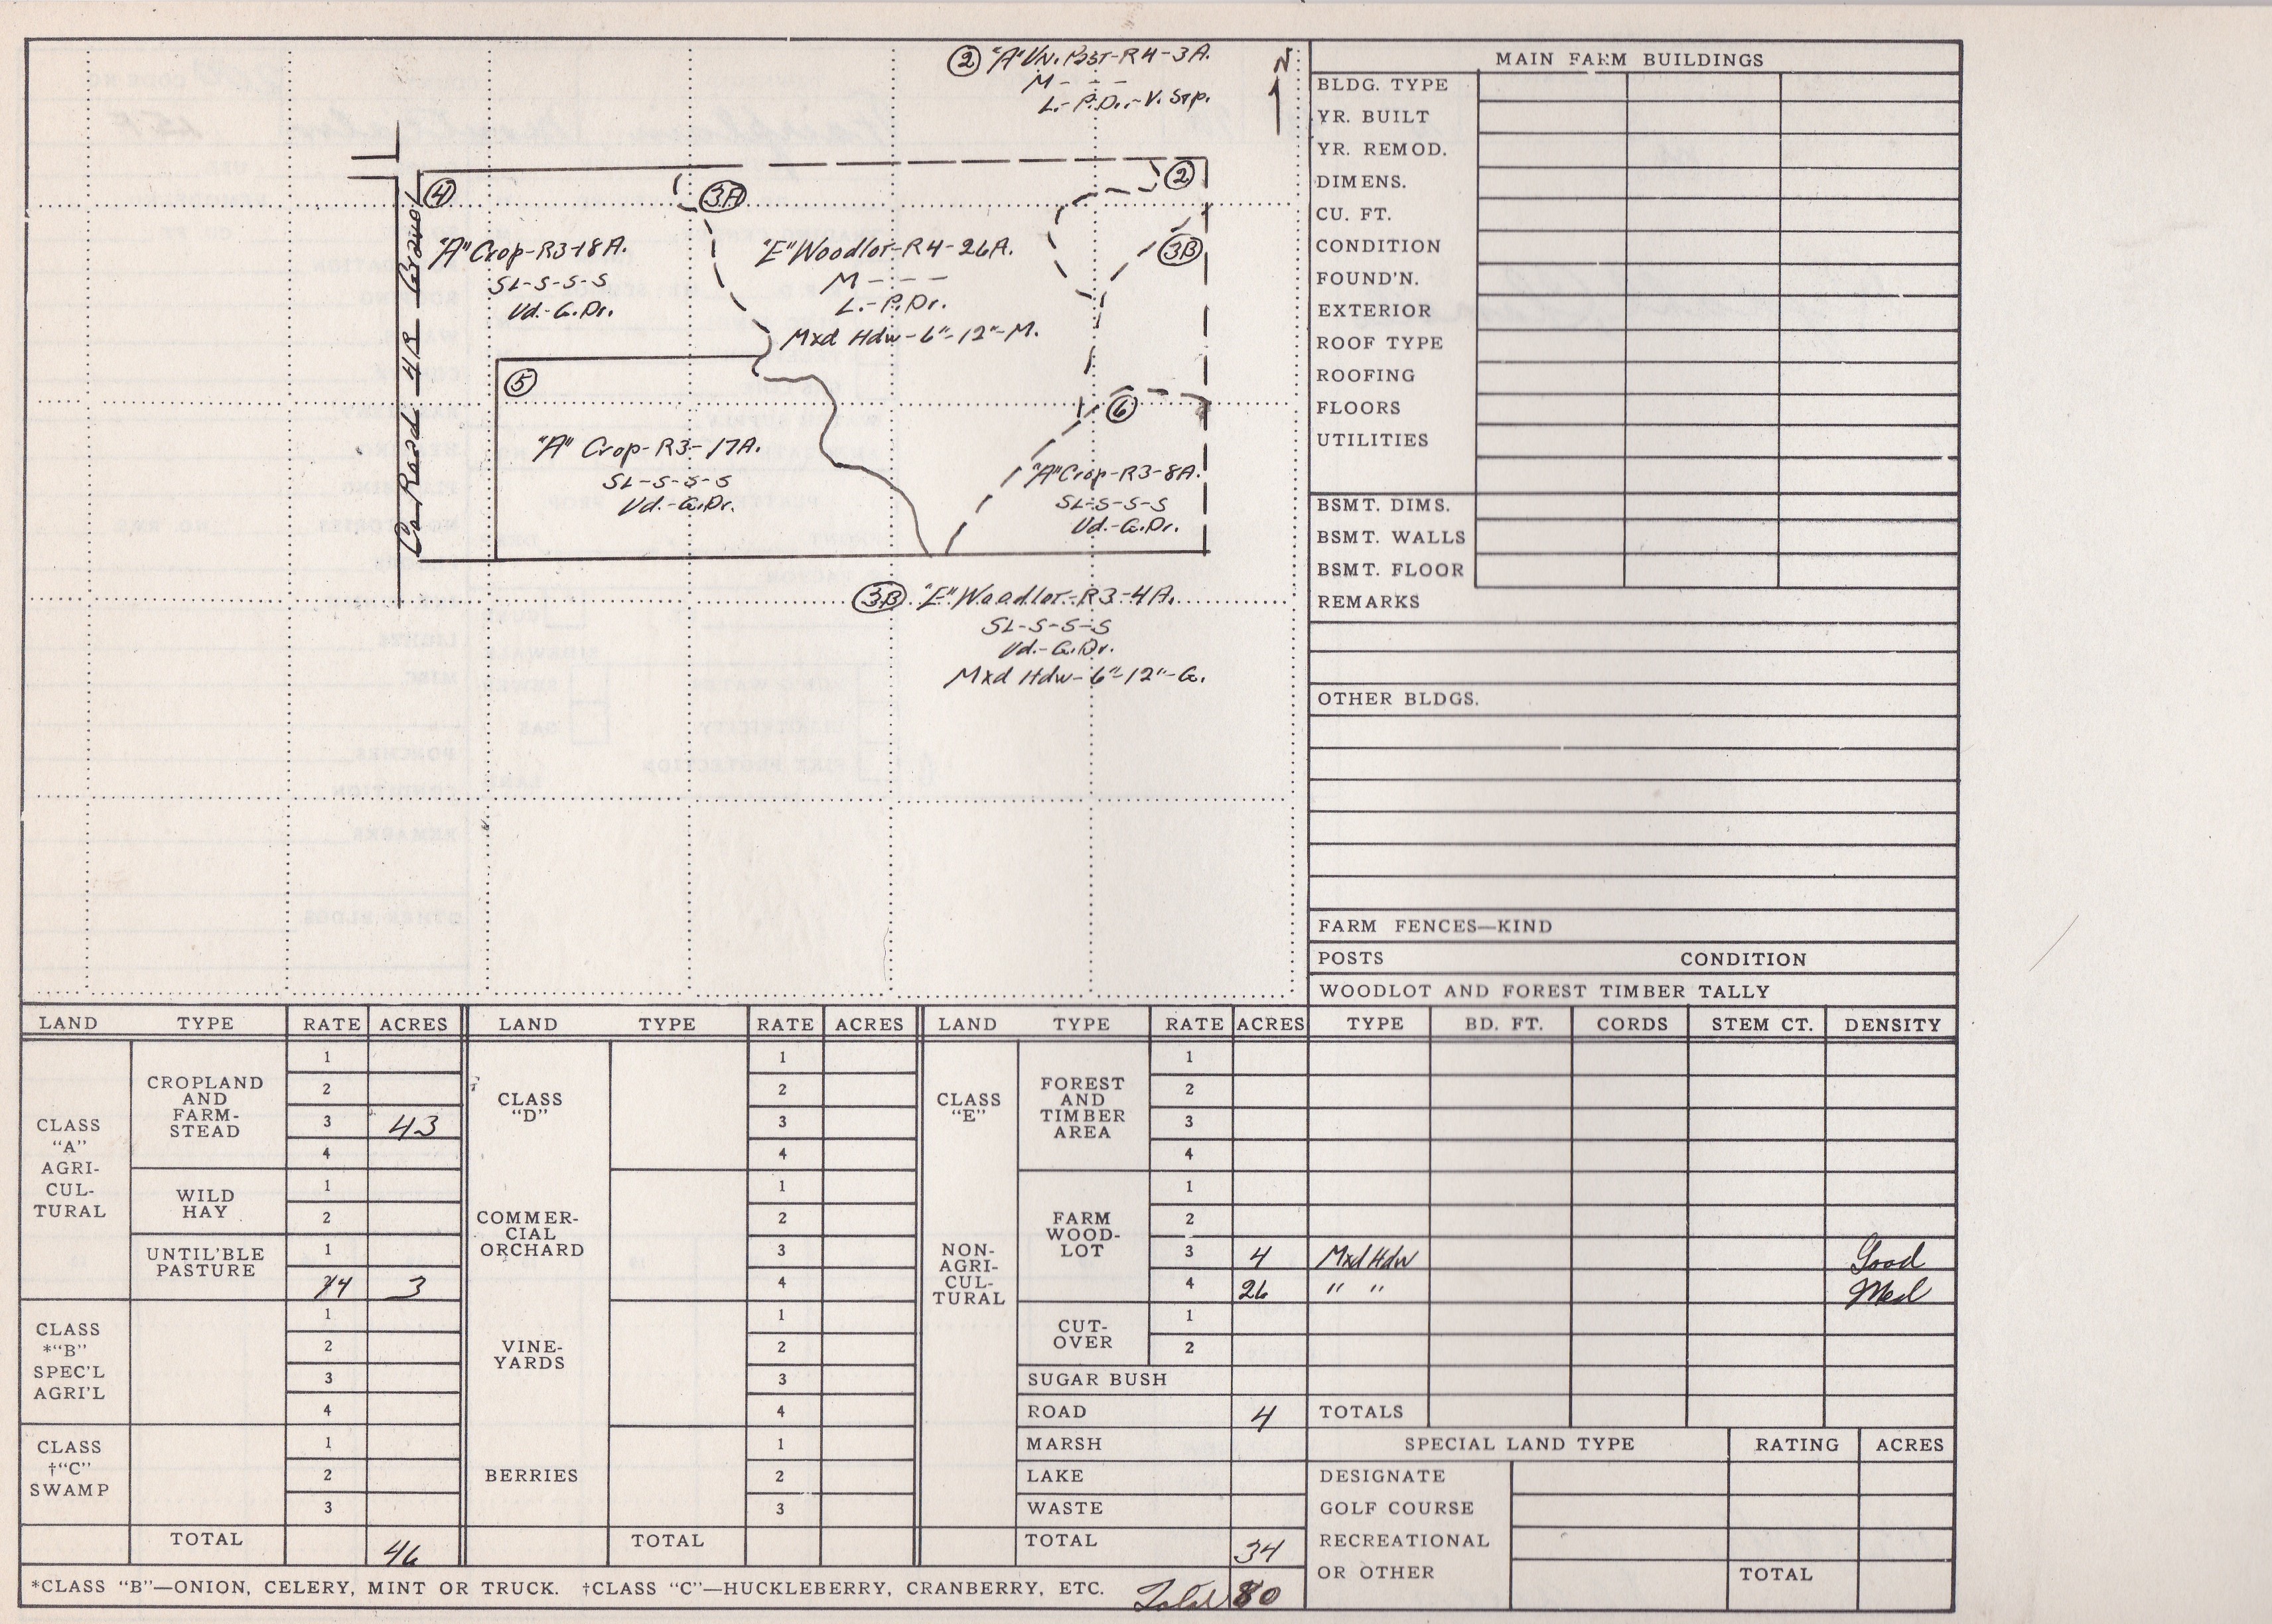 ② "A" Un. Past-R4-3A.
M - - -
L.-P.Dr.-V. Stp.
N
④
3A
②
3B
"A" Crop-R3-18A.
SL-S-S-S
Ud.-G.Dr.
"E" Woodlot-R4-26A.
M - - -
L.-P.Dr.
Mxd Hdw-6"-12"-M.
Co Road 4R Gravel
⑤
"A" Crop-R3-17A.
SL-S-S-S
Ud.-G.Dr.
⑥
"A" Crop-R3-8A.
SL-S-S-S
Ud.-G.Dr.
3B "E" Woodlot-R3-4A.
SL-S-S-S
Ud.-G.Dr.
Mxd Hdw-6"-12"-G.
MAIN FARM BUILDINGS
BLDG. TYPE
YR. BUILT
YR. REMOD.
DIMENS.
CU. FT.
CONDITION
FOUND'N.
EXTERIOR
ROOF TYPE
ROOFING
FLOORS
UTILITIES
BSMT. DIMS.
BSMT. WALLS
BSMT. FLOOR
REMARKS
OTHER BLDGS.
FARM FENCES—KIND
POSTS CONDITION
WOODLOT AND FOREST TIMBER TALLY
LAND TYPE RATE ACRES LAND TYPE RATE ACRES LAND TYPE RATE ACRES TYPE BD. FT. CORDS STEM CT. DENSITY
CLASS
"A"
AGRI-
CUL-
TURAL
CROPLAND
AND
FARM-
STEAD
1
2
3 43
4
WILD
HAY
1
2
UNTIL'BLE
PASTURE
1
4 3
CLASS
*"B"
SPEC'L
AGRI'L
1
2
3
4
CLASS
†"C"
SWAMP
1
2
3
TOTAL 46
CLASS
"D"
1
2
3
4
COMMER-
CIAL
ORCHARD
1
2
3
4
VINE-
YARDS
1
2
3
4
BERRIES
1
2
3
TOTAL
CLASS
"E"
NON-
AGRI-
CUL-
TURAL
FOREST
AND
TIMBER
AREA
1
2
3
4
FARM
WOOD-
LOT
1
2
3 4 Mxd Hdw Good
4 26 " " Med
CUT-
OVER
1
2
SUGAR BUSH
ROAD 4 TOTALS
MARSH
LAKE
WASTE
TOTAL 34
SPECIAL LAND TYPE RATING ACRES
DESIGNATE
GOLF COURSE
RECREATIONAL
OR OTHER TOTAL
*CLASS "B"—ONION, CELERY, MINT OR TRUCK. †CLASS "C"—HUCKLEBERRY, CRANBERRY, ETC. Total 80